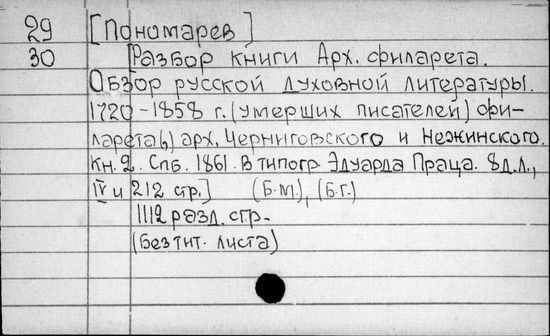 29 [Пономарев]
30 [Разбор книги Арх. Филарета.
Обзор русской духовной литературы.
1720-1858 г. (умерших писателей) Фи-
ларета(,) арх. Черниговского и Нежинского.
Кн. 2. Спб. 1861. В типогр. Эдуарда Праца. 8д.л.,
IV и 212 стр.] (Б.М.), (Б.Г.)
1112 разд. стр.
(Без тит. листа)